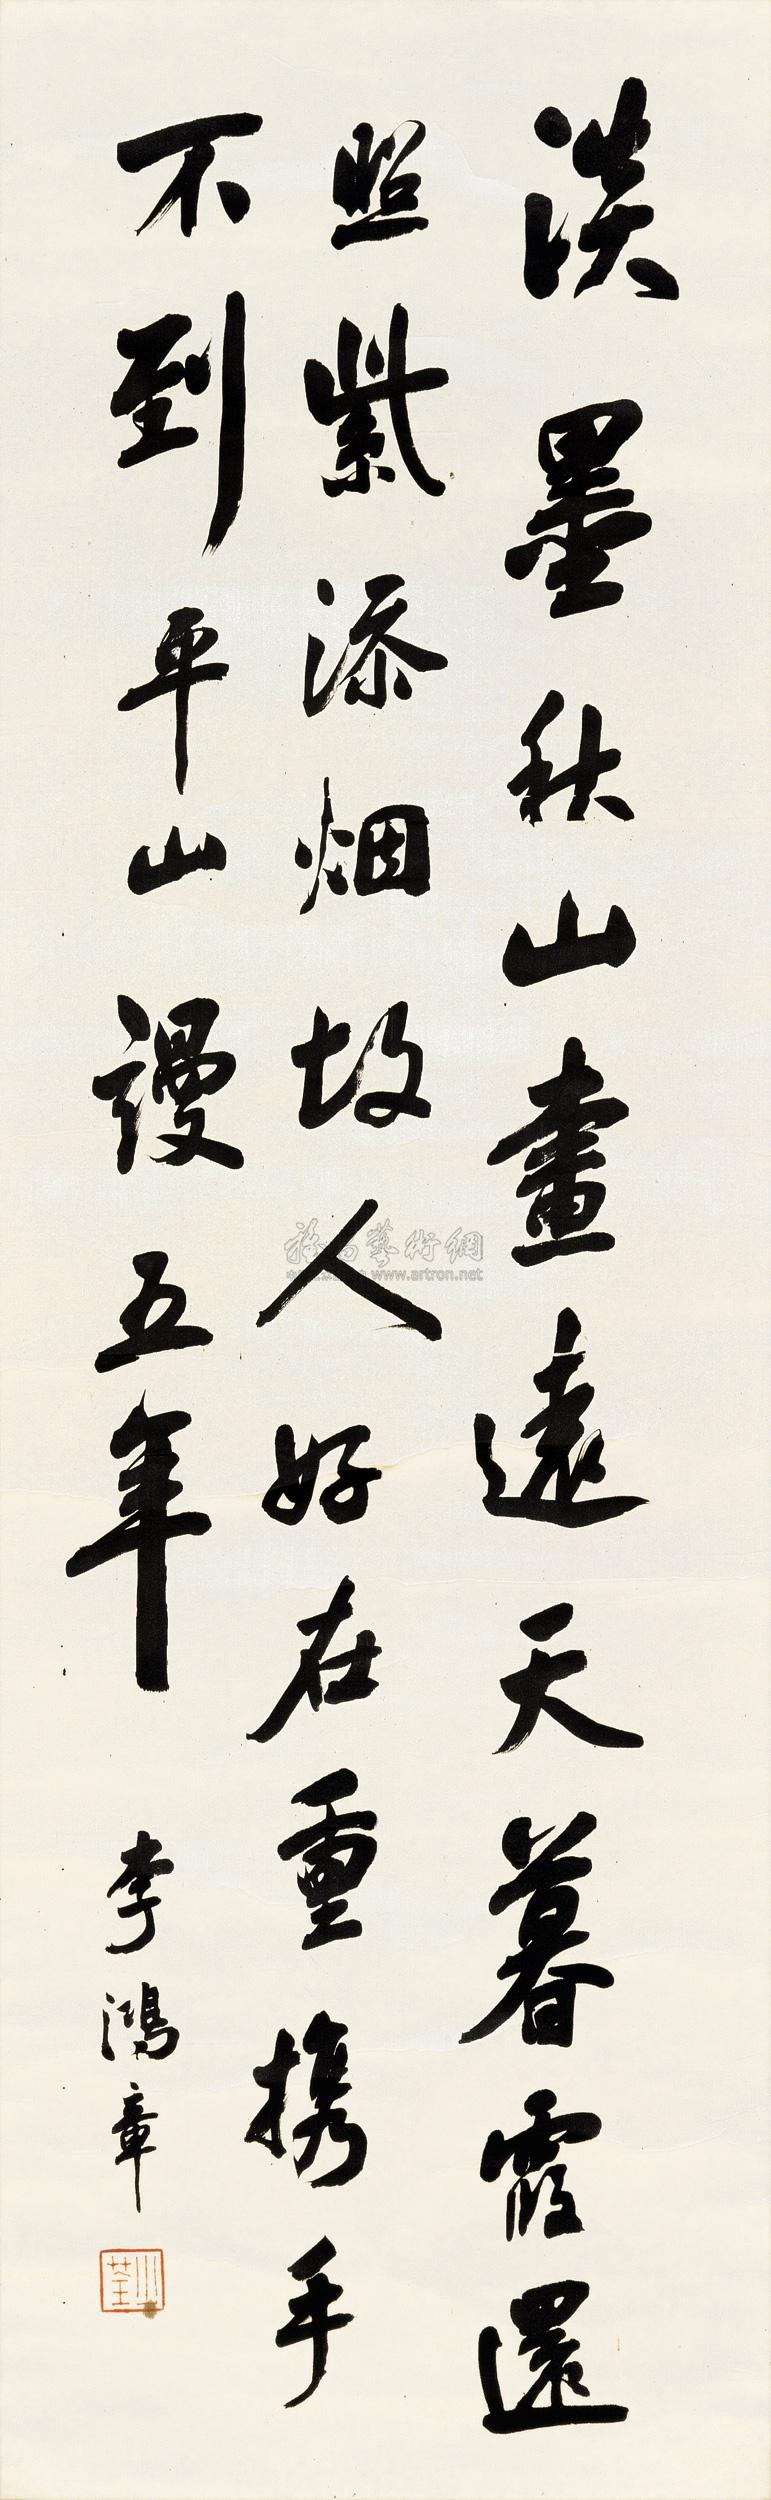 淡墨秋山畫遠天暮霞還
照紫添烟故人好在重携手
不到平山謾五年
李鴻章
www.artron.net